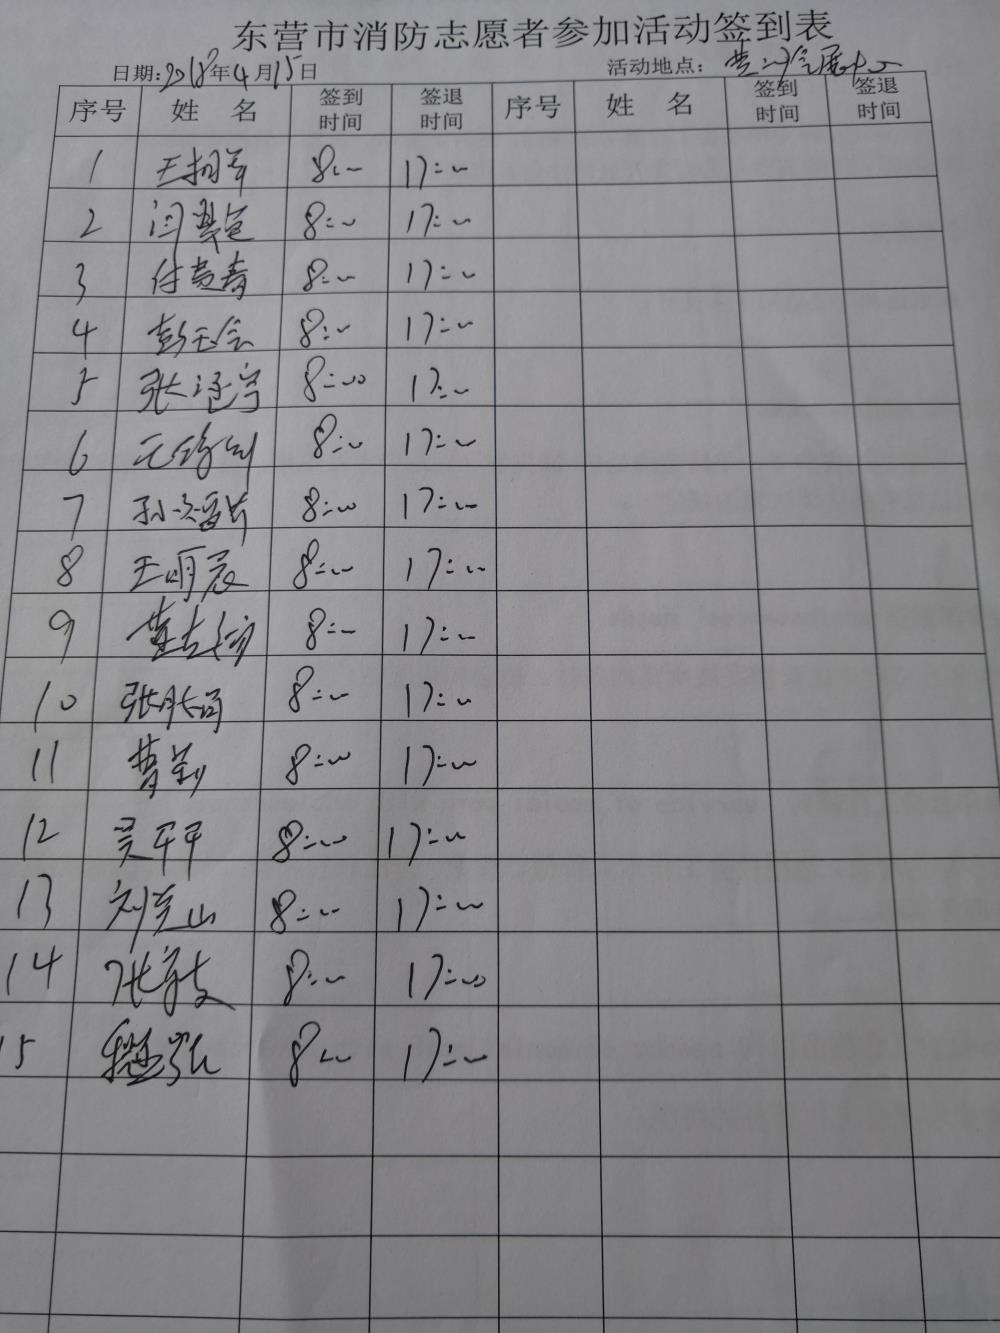 东营市消防志愿者参加活动签到表
日期:2018年4月15日 活动地点: 黄河会展中心
序号 姓 名 签到时间 签退时间 序号 姓 名 签到时间 签退时间
1 8:00 17:00
2 闫 8:00 17:00
3 付贵春 8:00 17:00
4 彭玉会 8:00 17:00
5 张 宁 8:00 17:00
6 8:00 17:00
7 孙 8:00 17:00
8 王明晨 8:00 17:00
9 8:00 17:00
10 张 8:00 17:00
11 曹 8:00 17:00
12 吴平平 8:00 17:00
13 刘 山 8:00 17:00
14 张 8:00 17:00
15 8:00 17:00